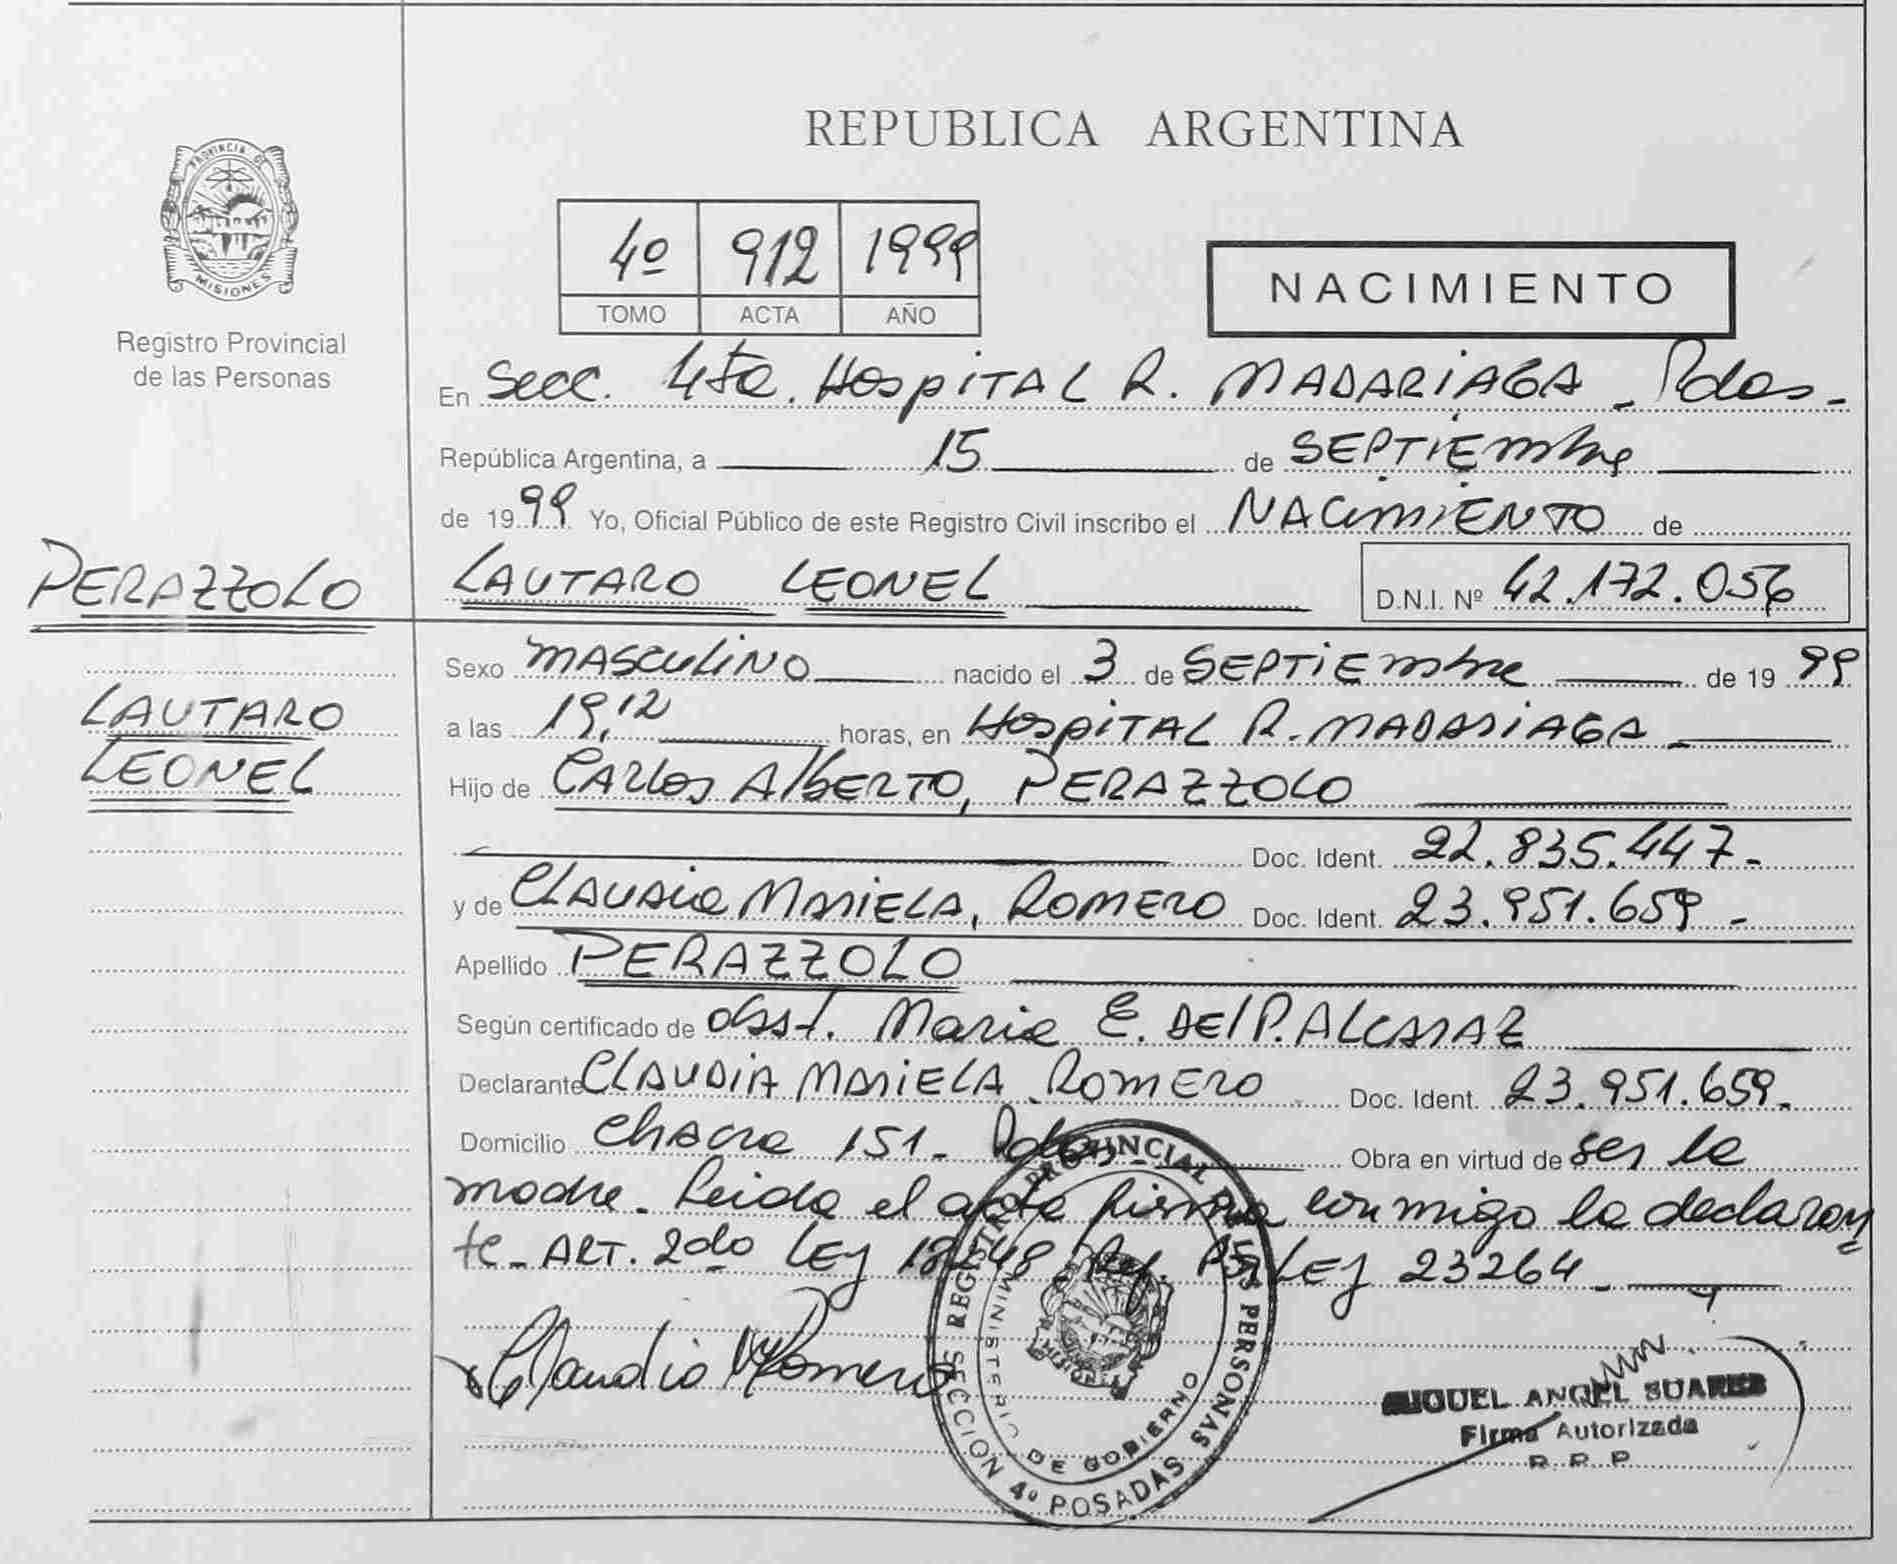 PROVINCIA DE
MISIONES
Registro Provincial
de las Personas
PERAZZOLO
LAUTARO
LEONEL
REPUBLICA ARGENTINA
4º 912 1999
TOMO ACTA AÑO
NACIMIENTO
En Secc. 4ta. HOSPITAL R. MADARIAGA - Pdas -
República Argentina, a 15 de SEPTIEmbre
de 1999 Yo, Oficial Público de este Registro Civil inscribo el NACIMIENTO de
LAUTARO LEONEL D.N.I. Nº 42.172.056
Sexo MASCULINO nacido el 3 de SEPTIEmbre de 1999
a las 19,12 horas, en HOSPITAL R. MADARIAGA -
Hijo de CARLOS ALBERTO, PERAZZOLO
Doc. Ident. 22.835.447 -
y de CLAUDIA MARIELA, ROMERO Doc. Ident. 23.951.659 -
Apellido PERAZZOLO
Según certificado de obst. Maria E. DEL P. ALCARAZ
Declarante CLAUDIA MARIELA ROMERO - Doc. Ident. 23.951.659 -
Domicilio Chacra 151 - Pdas - Obra en virtud de ser la
madre - Leida el acta firma conmigo la declaran
te - ART. 2do LEY 18248 Ref. Por LEY 23264 -
Claudia M Romero
REGISTRO PROVINCIAL DE LAS PERSONAS
MINISTERIO DE GOBIERNO
MISIONES
SECCION 4º POSADAS
MIGUEL ANGEL SUAREZ
Firma Autorizada
R. R. P.